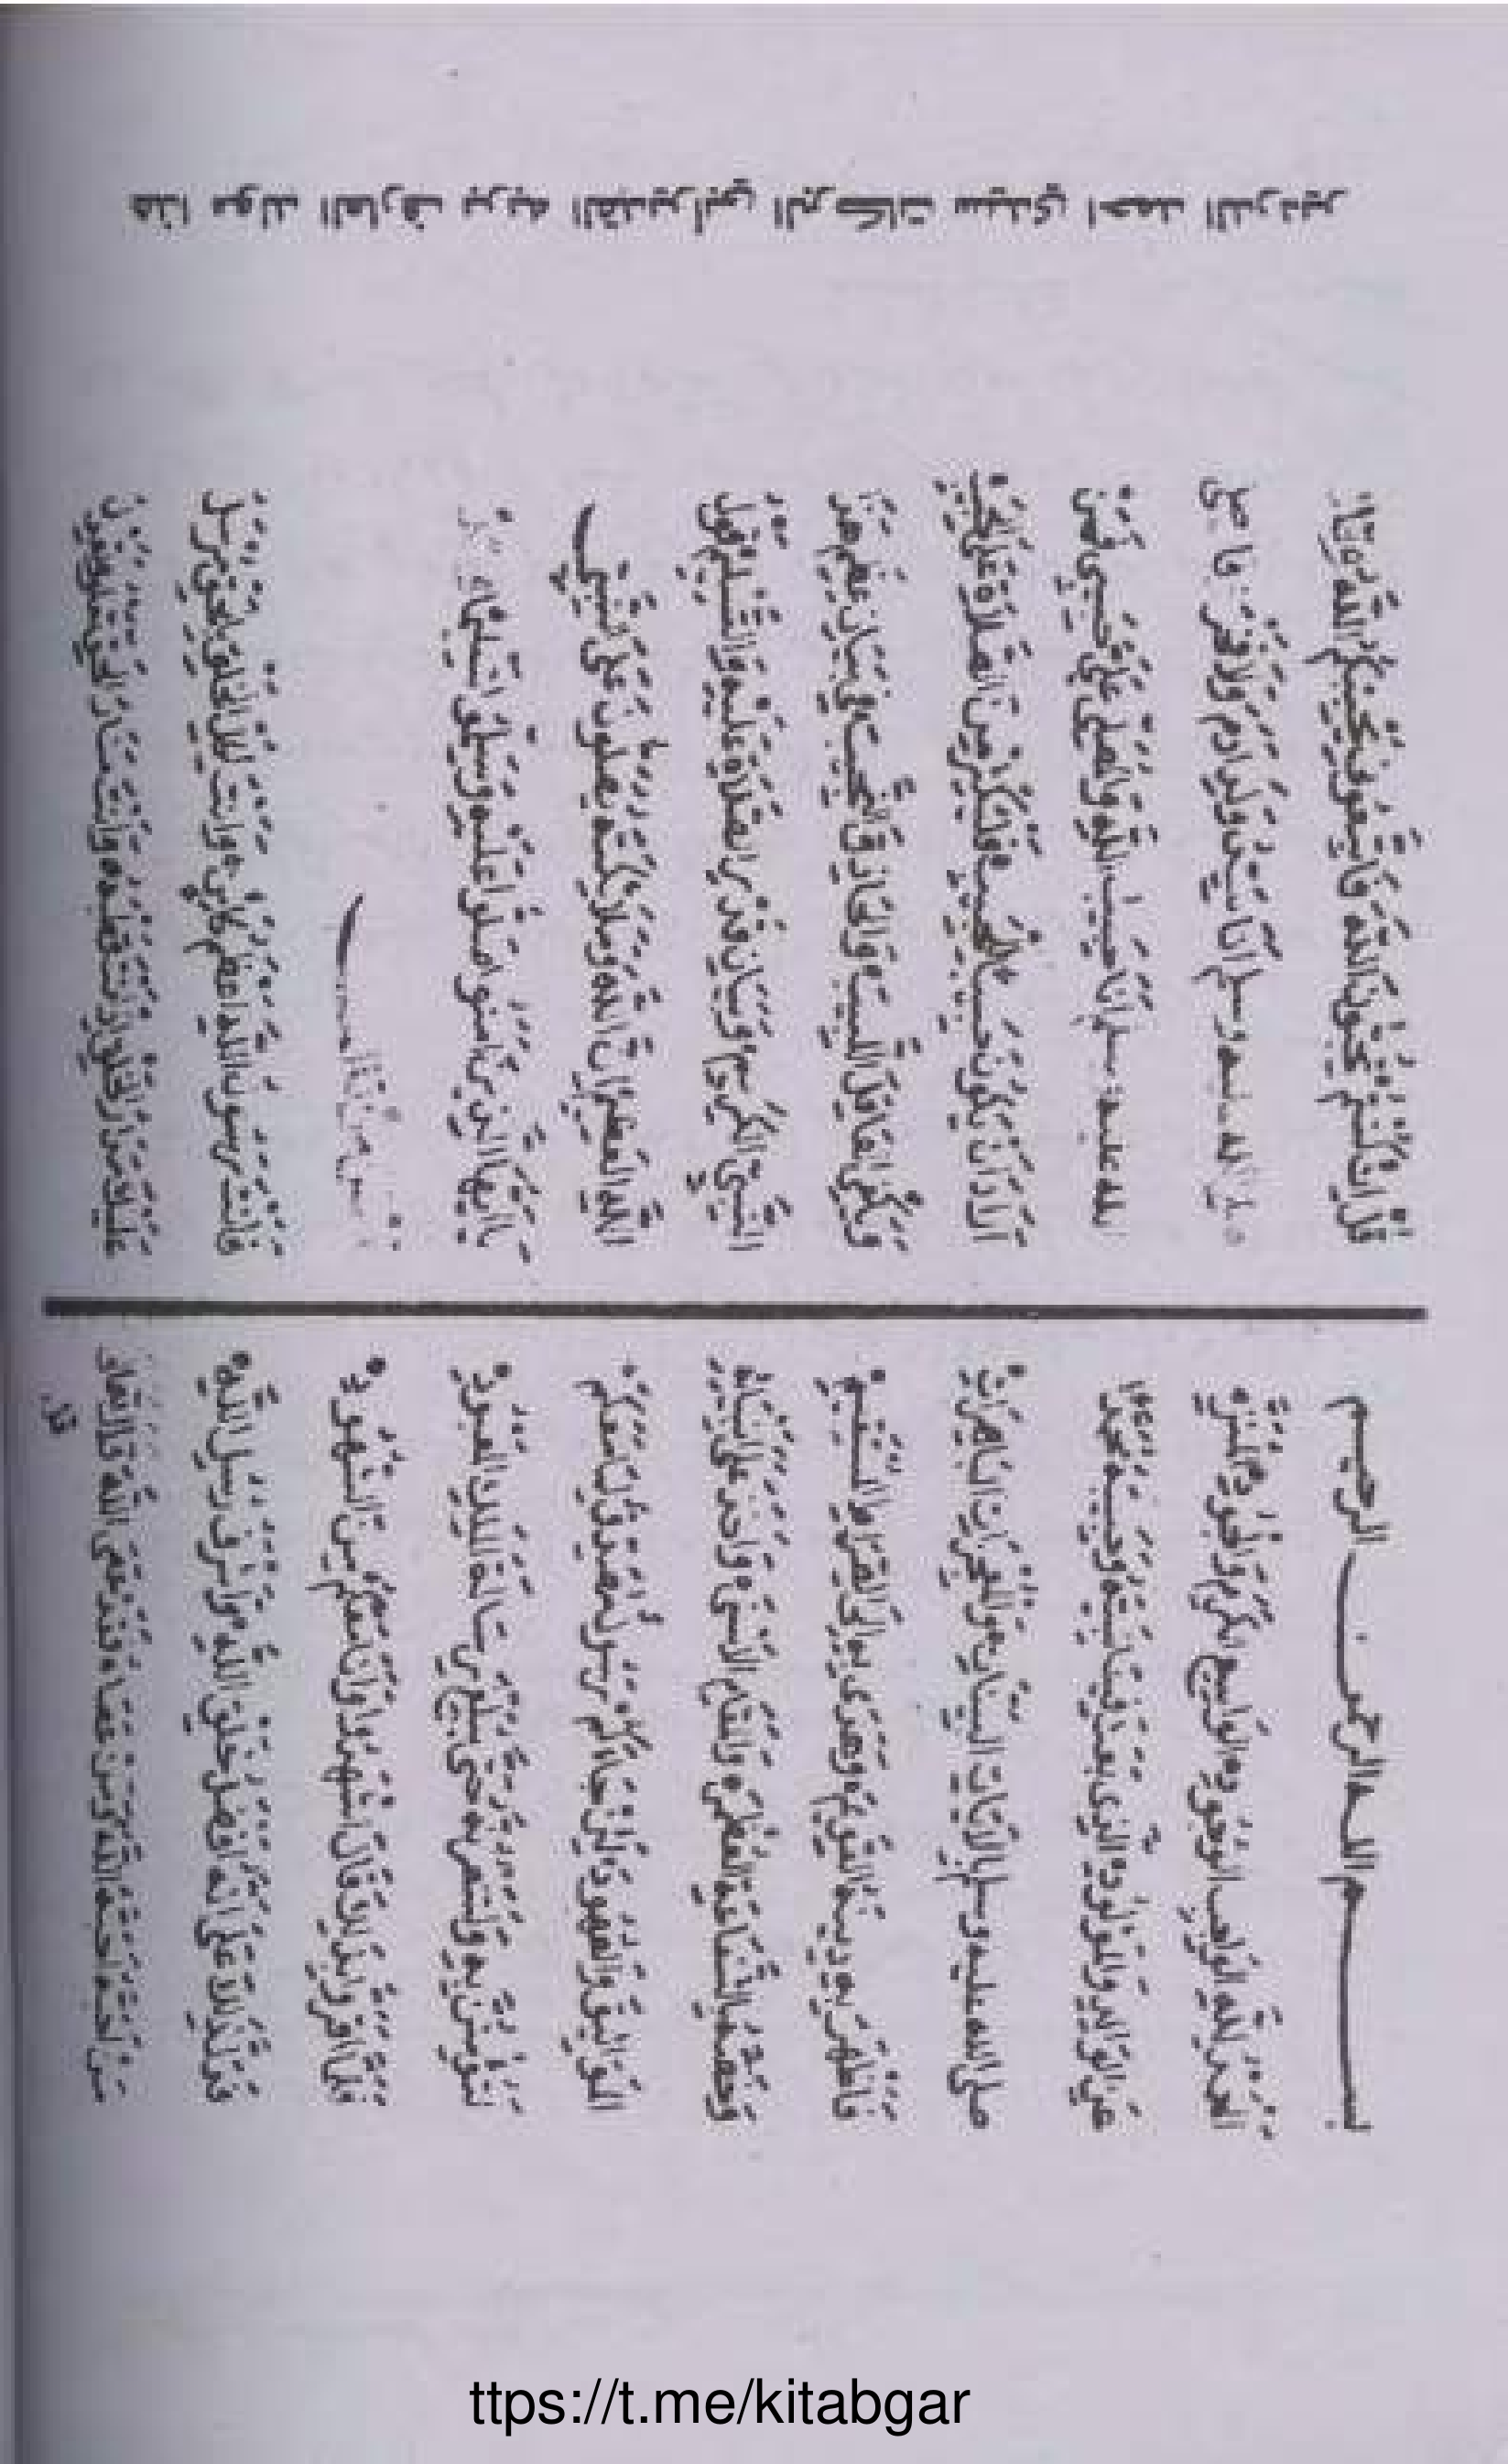 هذا مولد العارف بربه القدير أبي البركات سيدي احمد الدردير
بســـم اللـه الرحمـــن الرحيــم
اَلْحَمْدُ لِلَّهِ الْوَاجِبِ الْوُجُودِ ه الْوَاسِعِ الْكَرَمِ وَالْجُودِ ه الْمُنَزَّهِ
عَنِ الْوَالِدِ وَالْمَوْلُودِ ه الَّذِي بَعَثَ فِينَا نَبِيَّهُ وَحَبِيبَهُ مُحَمَّدًا
صلى الله عليه وسلم بِالْآيَاتِ الْبَيِّنَاتِ ه وَالْمُعْجِزَاتِ الْبَاهِرَاتِ ه
فَأَظْهَرَ بِهِ دِينَهُ الْقَوِيمَ ه وَهَدَى بِهِ إِلَى الصِّرَاطِ الْمُسْتَقِيمِ ه
وَخَصَّهُ بِالشَّفَاعَةِ الْعُظْمَى ه وَالْمَقَامِ الْأَسْنَى ه وَأَخَذَ عَلَى أَنْبِيَائِهِ
الْمَوَاثِيقَ وَالْعُهُودَ ه لَئِنْ جَاءَكُمْ رَسُولٌ مُصَدِّقٌ لِمَا مَعَكُمْ
لَتُؤْمِنُنَّ بِهِ وَلَتَنْصُرُنَّهُ حَتَّى يُبَلِّغَ رِسَالَةَ الْمَلِكِ الْمَعْبُودِ ه
فَلَمَّا أَقَرُّوا بِذَلِكَ قَالَ اشْهَدُوا وَأَنَا مَعَكُمْ مِنَ الشُّهُودِ ه
فَدَلَّ ذَلِكَ عَلَى أَنَّهُ أَفْضَلُ خَلْقِ اللَّهِ ه وَأَشْرَفُ رُسُلِ اللَّهِ ه
مَنْ أَحَبَّهُ أَحَبَّهُ اللَّهُ وَمَنْ عَصَاهُ فَقَدْ عَصَى اللَّهَ قَالَ تَعَالَى
قل
قُلْ إِنْ كُنْتُمْ تُحِبُّونَ اللَّهَ فَاتَّبِعُونِي يُحْبِبْكُمُ اللَّهُ ه وَقَالَ
صلى الله عليه وسلم أَنَا سَيِّدُ وَلَدِ آدَمَ وَلَا فَخْرَ وقال صلى
الله عليه وسلم أَنَا حَبِيبُ اللَّهِ وَالْمُصَلِّي عَلَيَّ حَبِيبِي فَمَنْ
أَرَادَ أَنْ يَكُونَ حَبِيبًا لِلْحَبِيبِ فَلْيُكْثِرْ مِنَ الصَّلَاةِ عَلَى الْحَبِيبِ
وَيَكْفِي الْعَاقِلَ اللَّبِيبَ ه وَالْحَاذِقَ النَّجِيبَ فِي بَيَانِ عِظَمِ هَذَا
النَّبِيِّ الْكَرِيمِ ه وَبَيَانِ قَدْرِ الصَّلَاةِ عَلَيْهِ وَالتَّسْلِيمِ ه قَوْلُ
اللَّهِ الْعَظِيمِ ه إِنَّ اللَّهَ وَمَلَائِكَتَهُ يُصَلُّونَ عَلَى النَّبِيِّ
يَا أَيُّهَا الَّذِينَ آمَنُوا صَلُّوا عَلَيْهِ وَسَلِّمُوا تَسْلِيمًا ه
فَأَنْتَ رَسُولُ اللَّهِ أَعْظَمُ كَائِنٍ ه وَأَنْتَ لِكُلِّ الْخَلْقِ بِالْحَقِّ مُرْسَلُ
عَلَيْكَ مَدَارُ الْخَلْقِ إِذْ أَنْتَ قُطْبُهُ ه وَأَنْتَ مَنَارُ الْحَقِّ تَعْلُو وَتَعْدِلُ
ttps://t.me/kitabgar